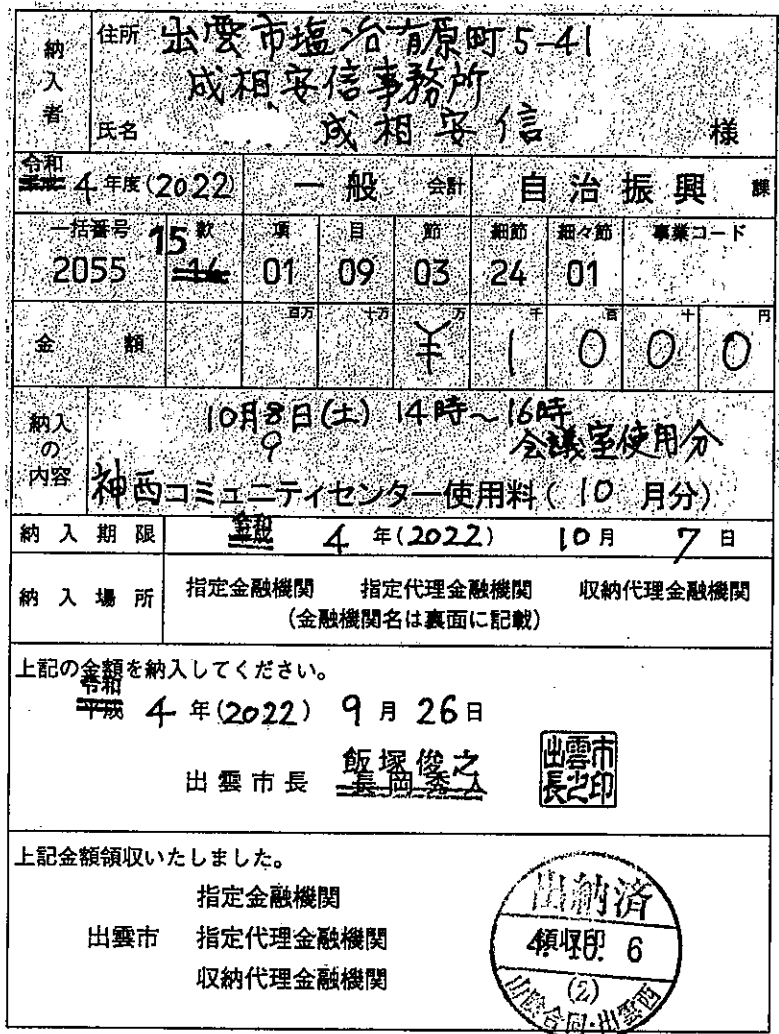 納入者
住所 出雲市塩冶有原町5-41
成相安信事務所
氏名 成相安信 様
令和
平成 4 年度(2022) 一般 会計 自治振興 課
一括番号 款 項 目 節 細節 細々節 事業コード
15
2055 14 01 09 03 24 01
百万 十万 万 千 百 十 円
金額 ¥ 1 0 0 0
納入の内容
10月8日(土) 14時〜16時
9
会議室使用分
神西コミュニティセンター使用料( 10 月分)
令和
納入期限 平成 4 年(2022) 10月 7 日
納入場所 指定金融機関 指定代理金融機関 収納代理金融機関
(金融機関名は裏面に記載)
上記の金額を納入してください。
令和
平成 4 年(2022) 9 月 26 日
飯塚俊之
出雲市長 長岡秀人
出雲市長之印
上記金額領収いたしました。
指定金融機関
出雲市 指定代理金融機関
収納代理金融機関
出納済
領収印
4. 10. 6
(2)
山陰合同・出雲西